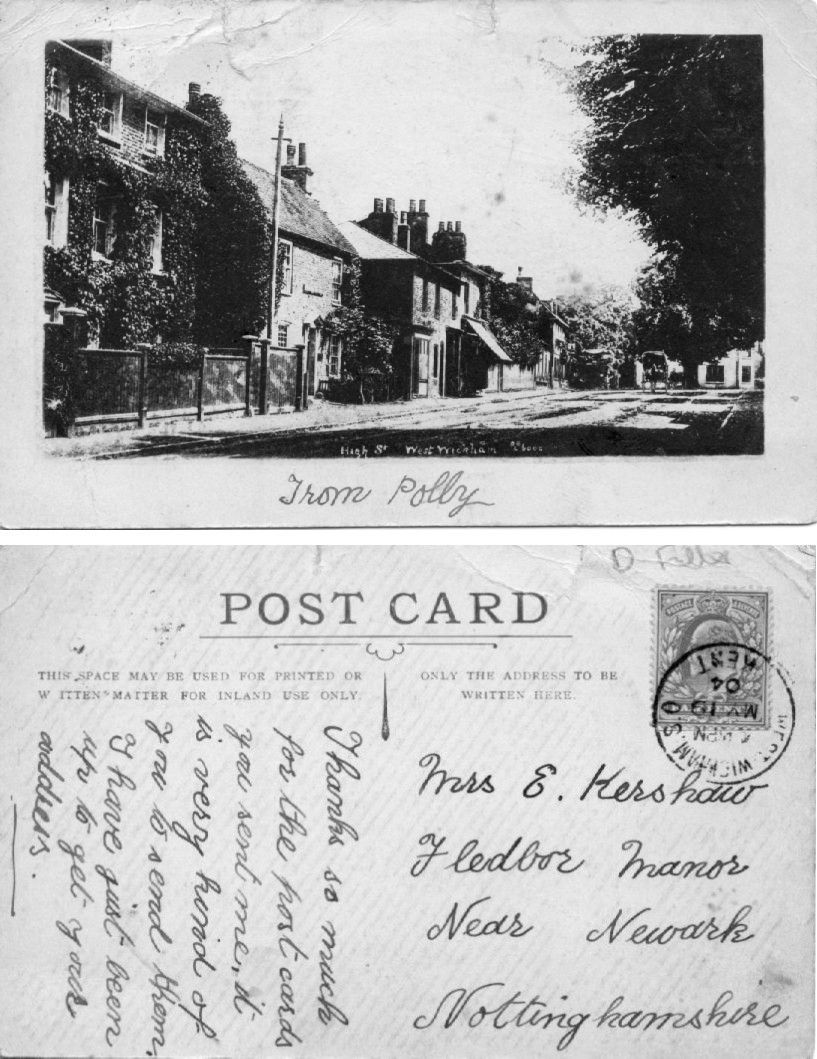 High St West Wickham
From Polly
D
POST CARD
THIS SPACE MAY BE USED FOR PRINTED OR
W ITTEN MATTER FOR INLAND USE ONLY.
ONLY THE ADDRESS TO BE
WRITTEN HERE.
POSTAGE
WEST WICKHAM S.O.
PM
MY 19
04
KENT
Thanks so much
for the post cards
you sent me, it
is very kind of
you to send them.
I have just been
up to get your
address.
Mrs E. Kershaw
Fledbor Manor
Near Newark
Nottinghamshire